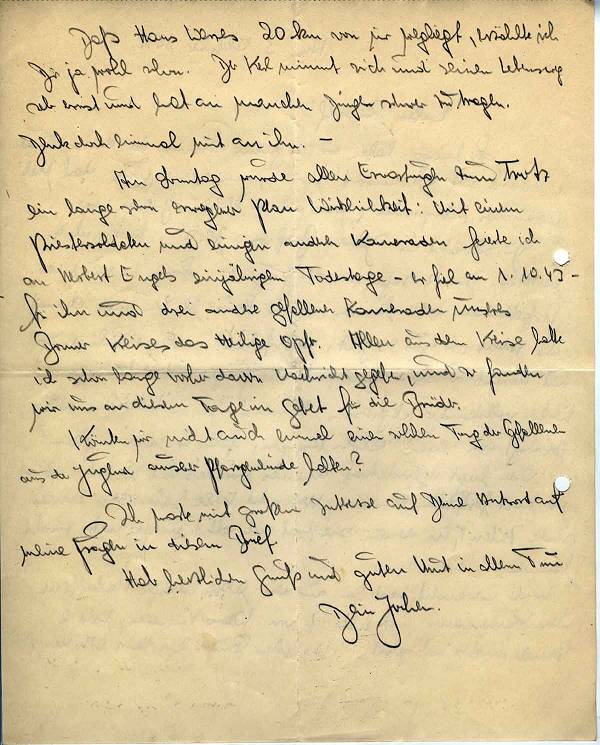 Daß Hans 20 km von mir wegliegt, erzählte ich
Dir ja wohl schon. Der Kerl nimmt sich und seinen
sehr ernst und hat an manchen Dingen schwer zu tragen.
Denk doch einmal mit an ihn. –
Am Sonntag wurde allen Erwartungen zum Trotz
ein lange schon erwogener Plan Wirklichkeit: Mit einem
Priestersoldaten und einigen anderen Kameraden feierte ich
an Herbert Engels einjährigem Todestage – er fiel am 1.10.43 –
für ihn und drei andere gefallene Kameraden unseres
Kreises das Heilige Opfer. Allen aus dem Kreise hatte
ich schon lange vorher davon Nachricht gegeben, und so fanden
wir uns an diesem Tage im Gebet für die Brüder.
Könnten wir nicht auch einmal einen solchen Tag der Gefallenen
aus der Jugend unserer Pfarrgemeinde halten?
Ich warte mit großem Interesse auf Deine Antwort auf
meine Fragen in diesem Brief.
Hab herzlichen Gruß und guten Mut in allem Tun
Dein Jochen.